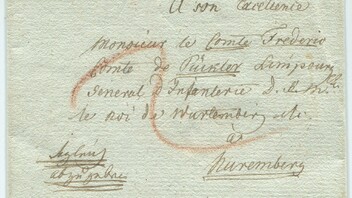 A son Excellence
Monsieur le Comte Frederic
Comte de Pückler Limpourg
General d'Infanterie D. L. M.
le Roi de Wurtemberg etc.
à
Nuremberg